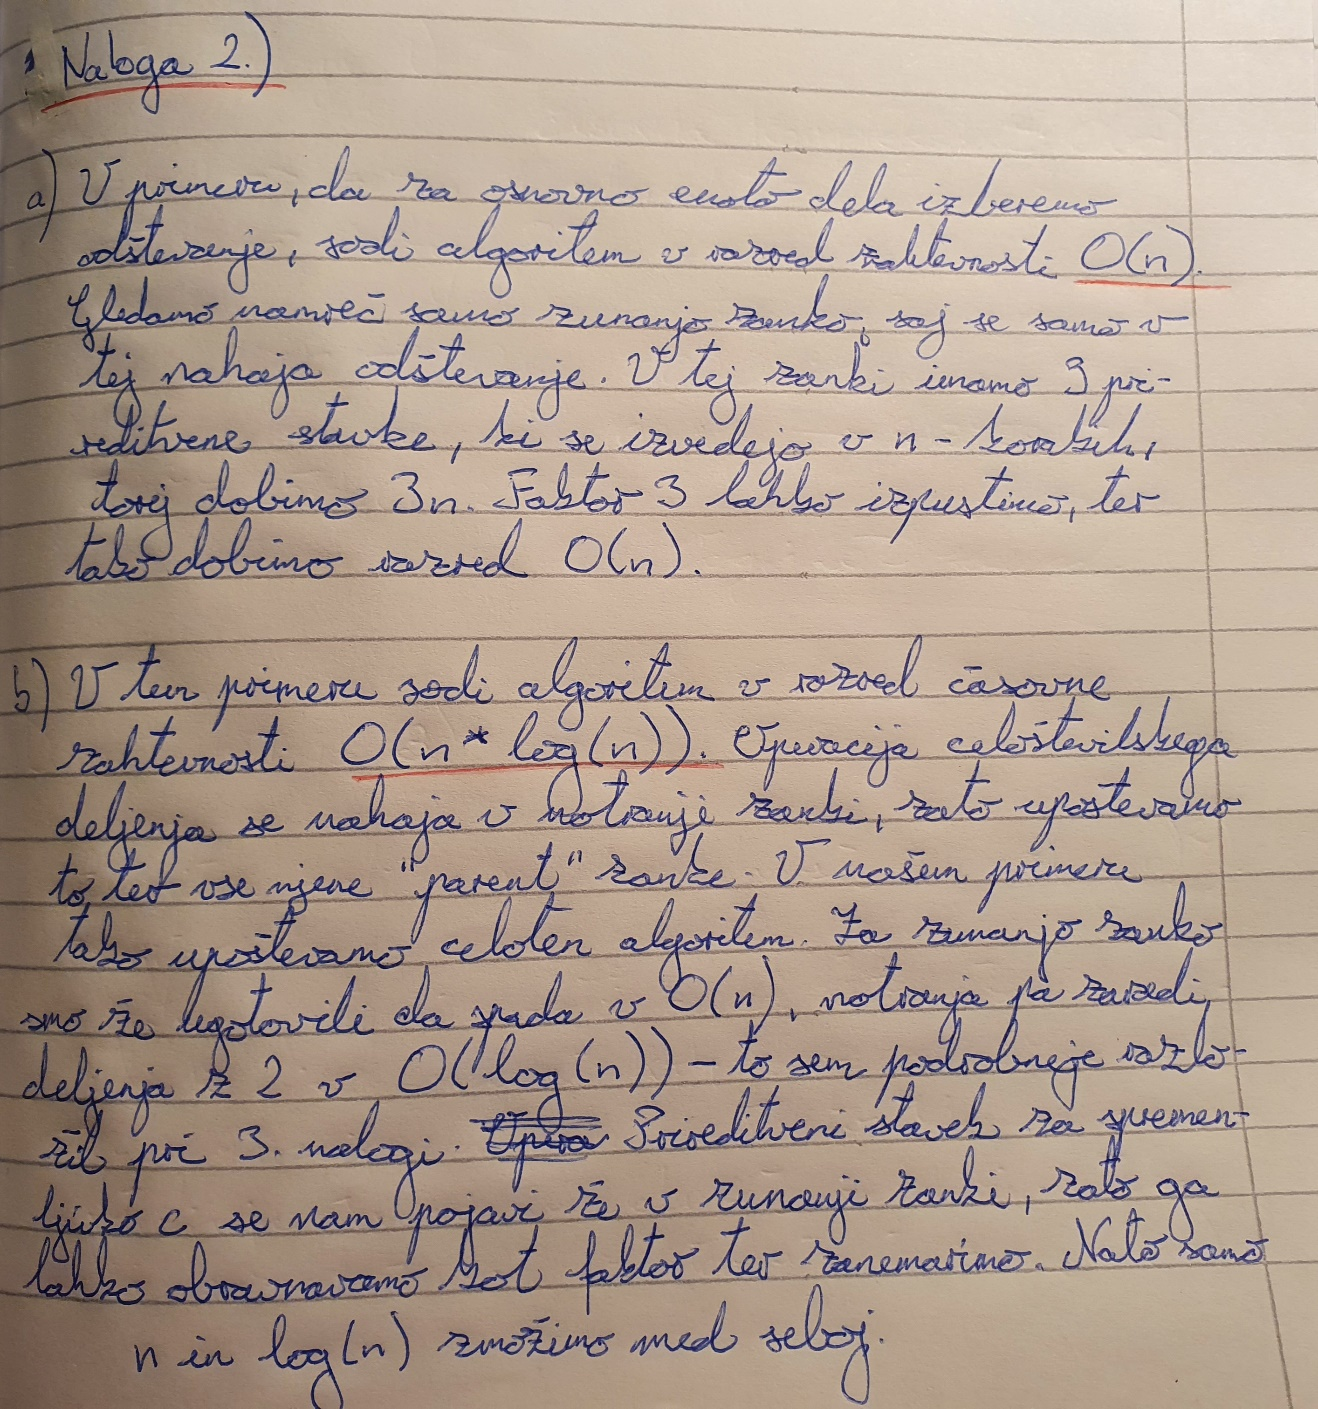 Naloga 2.)
a) V primeru, da za osnovno enoto dela izberemo
odštevanje, sodi algoritem v razred zahtevnosti O(n).
Gledamo namreč samo zunanjo zanko, saj se samo v
tej nahaja odštevanje. V tej zanki imamo 3 pri-
reditvene stavke, ki se izvedejo v n-korakih,
torej dobimo 3n. Faktor 3 lahko izpustimo, ter
tako dobimo razred O(n).
b) V tem primeru sodi algoritem v razred časovne
zahtevnosti O(n* log(n)). Operacija celoštevilskega
deljenja se nahaja v notranji zanki, zato upoštevamo
to, ter vse njene "parent" zanke. V našem primeru
tako upoštevamo celoten algoritem. Za zunanjo zanko
smo že ugotovili da spada v O(n), notranja pa zaradi
deljenja z 2 v O(log(n)) - to sem podrobneje razlo-
žil pri 3. nalogi. Prireditveni stavek za spremen-
ljivko c se nam pojavi že v zunanji zanki, zato ga
lahko obravnavamo kot faktor ter zanemarimo. Nato samo
n in log(n) zmožimo med seboj.